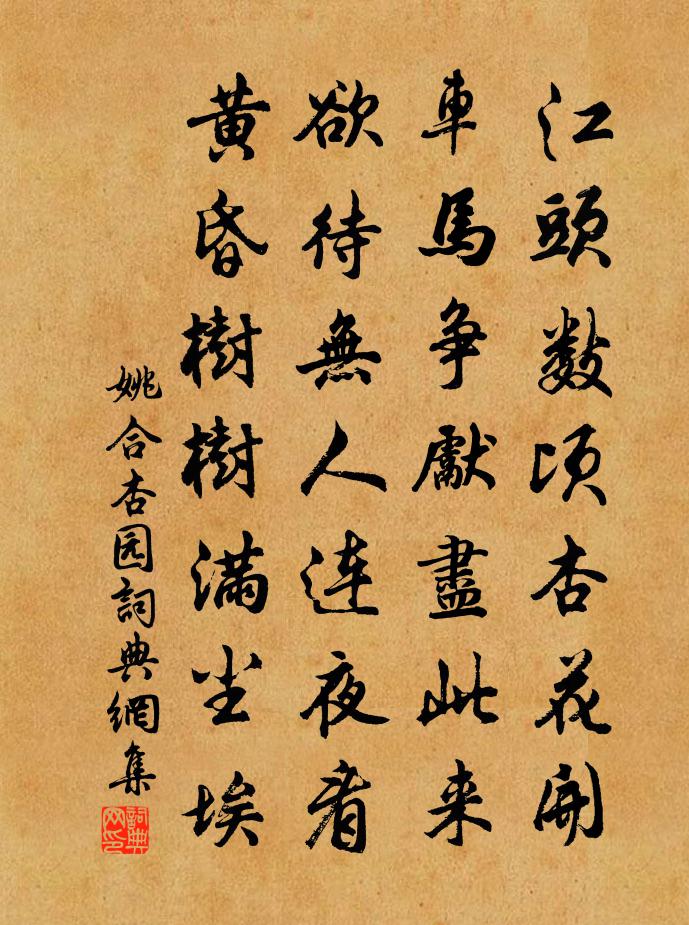 江頭数頃杏花開
車馬争獻盡此來
欲待無人連夜看
黄昏樹樹滿尘埃
姚合杏园詞典網集
詞典网印